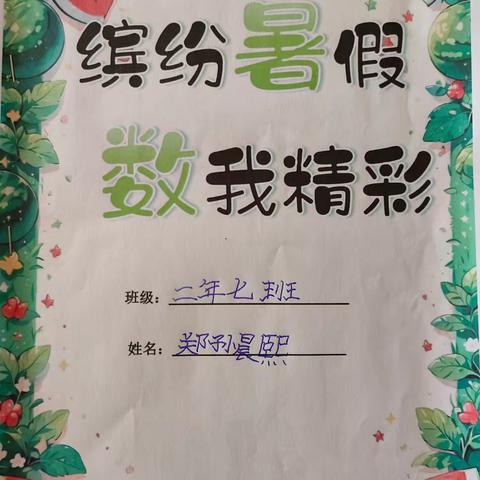 缤纷暑假
数我精彩
班级：二年七班
姓名：郑孙晨熙